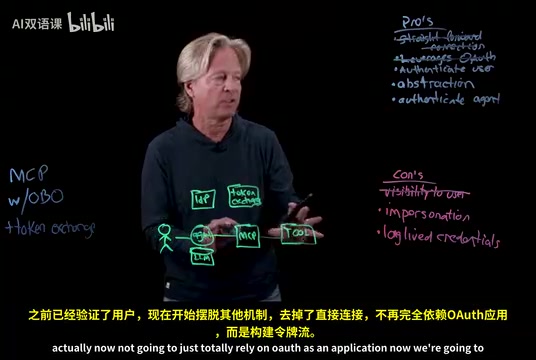 AI双语课 bilibili
Pro's
Straight forward
connection
Leverages OAuth
• Authenticate user
• abstraction
• authenticate agent
MCP
w/OBO
+token exchange
IdP
token
exchange
MCP
TOOL
LLM
Con's
visibility to user
• impersonation
• long lived credentials
之前已经验证了用户，现在开始摆脱其他机制，去掉了直接连接，不再完全依赖OAuth应用
，而是构建令牌流。
actually now not going to just totally rely on oauth as an application now we're going to